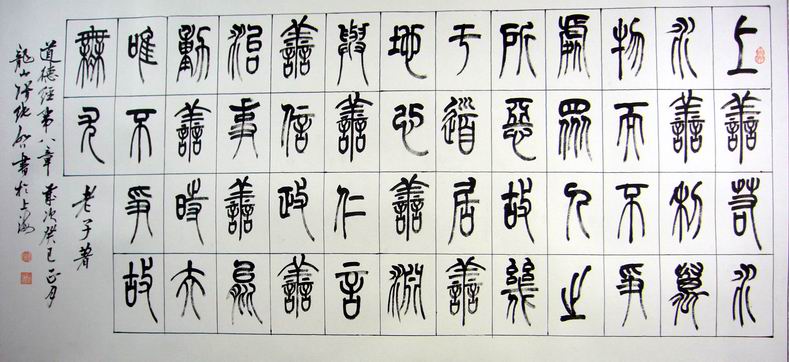 上善若水
水善利萬
物而不爭
處眾人之
所惡故幾
于道居善
地心善淵
與善仁言
善信政善
治事善能
動善時夫
唯不爭故
無尤
老子著
道德經第八章 歲次癸巳正月
龍山 書於上海